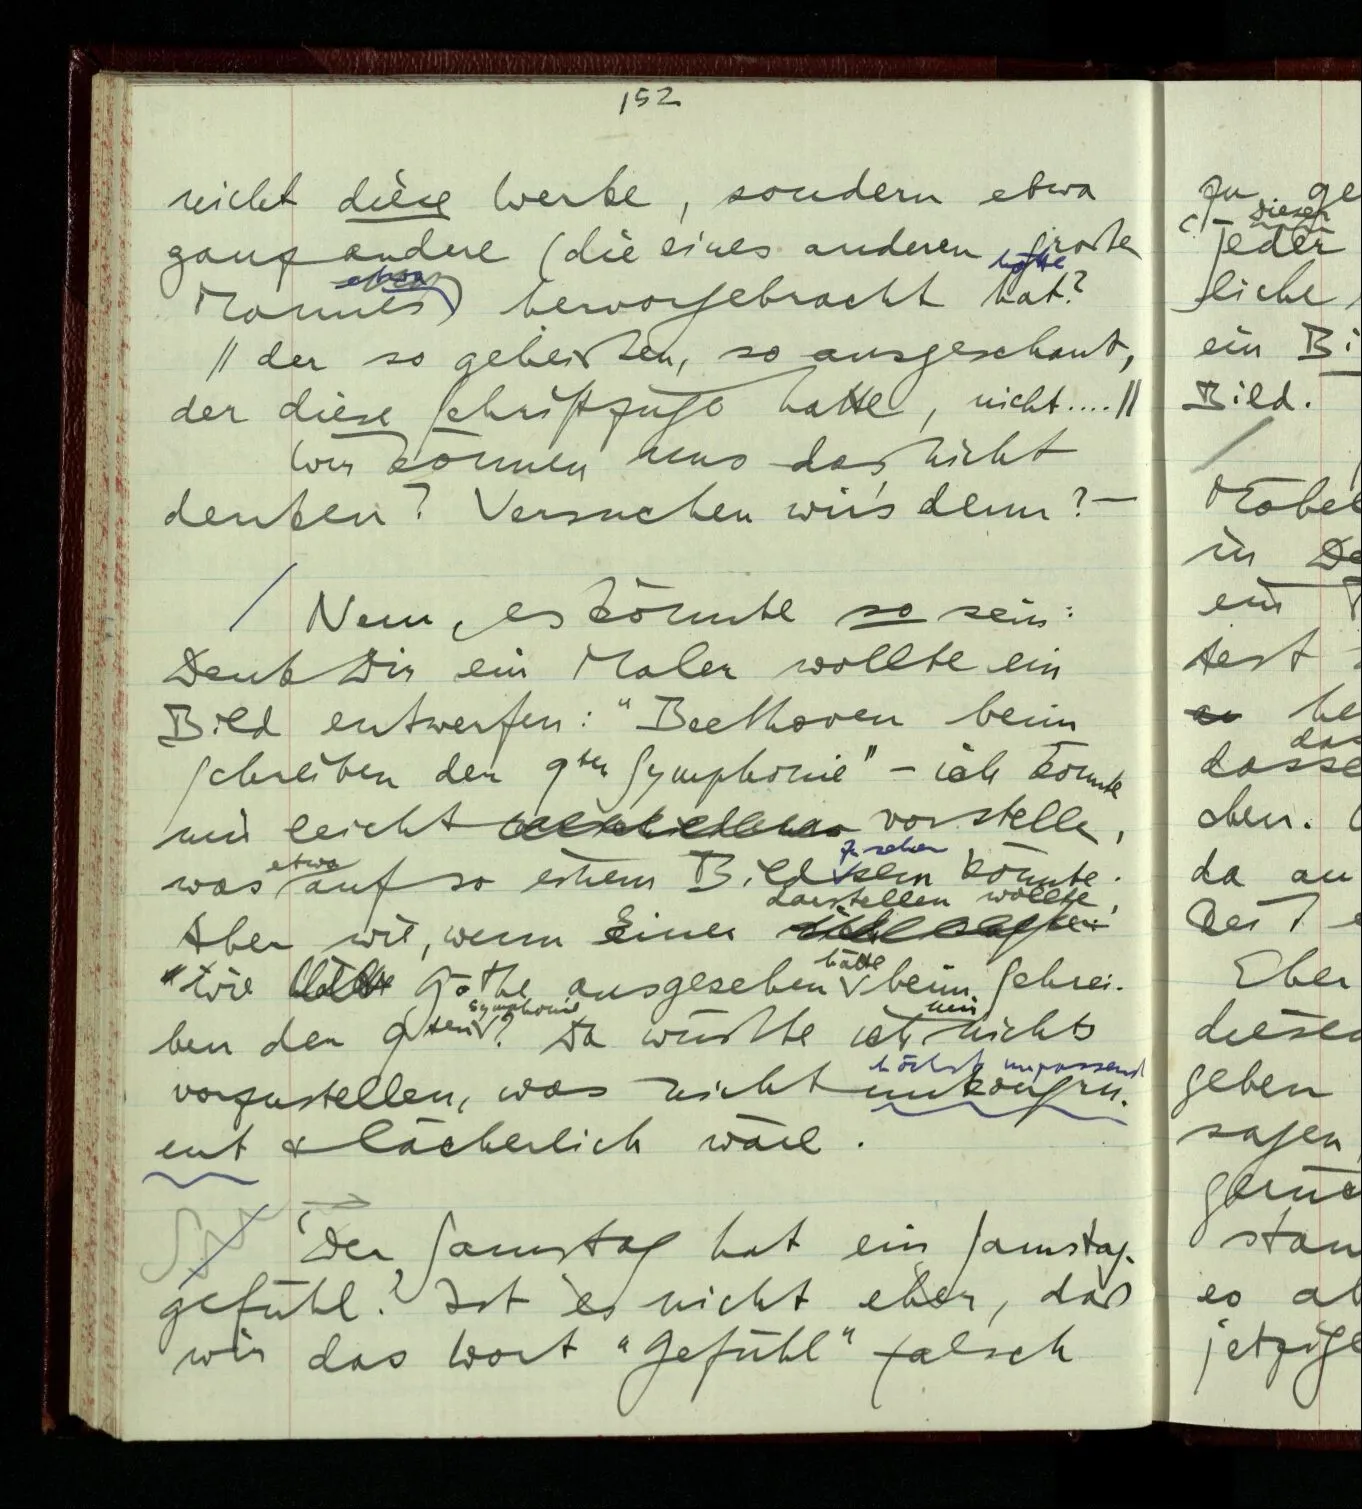 152
nicht diese Werke, sondern etwa
ganz andere (die eines anderen großen
hätte
Mannes) hervorgebracht hat?
|| der so geheißen, so ausgeschaut,
der diese Schriftzüge hatte, nicht....||
Wir können uns das nicht
denken? Versuchen wir's denn? —
/ Nun, es könnte so sein:
Denk Dir ein Maler wollte ein
Bild entwerfen: "Beethoven beim
Schreiben der 9ten Symphonie" – ich könnte
mir leicht vorstellen,
zu sehen
etwa
was auf so einem Bild sein könnte.
darstellen wollte,
Aber wie, wenn Einer
hätte
"wie Göthe ausgesehen beim Schrei-
Symphonie
mir
ben der 9ten? Da wüßte ich nichts
höchst unpassend
vorzustellen, was nicht unkongru-
ent & lächerlich wäre.
/ Der Samstag hat ein Samstag-
gefühl? Ist es nicht eher, daß
wir das Wort "Gefühl" falsch
zu ge
dieser
jeder
liche
ein Bi
Bild.
Möbel
in De
ein
test
he
das
dasse
chen.
da au
Eber
diese
geben
sagen
stan
es ab
jetzige